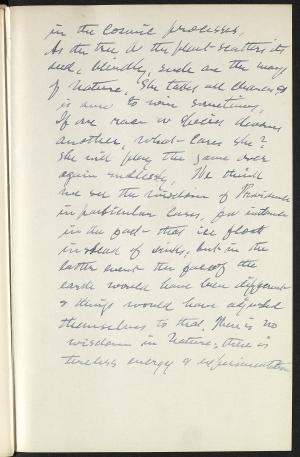 in the cosmic processes.
As the tree or the plant scatters its
seed, blindly, such are the ways
of Nature. She takes all chances &
is sure to win sometime,
If one race or species devours
another, what cares she?
She will play the game over
again endlessly. We think
we see the wisdom of Providence
in particular cases, for instance
in the fact that ice floats
instead of sinks, but in the
latter event the face of the
earth would have been different
& things would have adjusted
themselves to that. There is no
wisdom in Nature; there is
tireless energy & experimentation